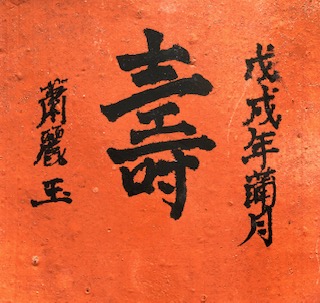 戊戌年蒲月
壽
蕭麗玉